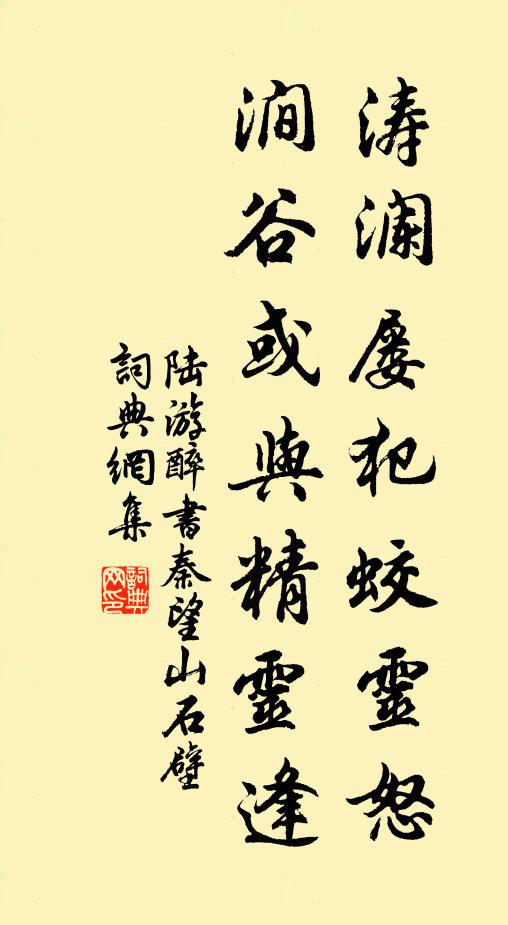 涛澜屡犯蛟靈怒
澗谷或與精靈逢
陆游醉書秦望山石壁
詞典網集
詞典网印